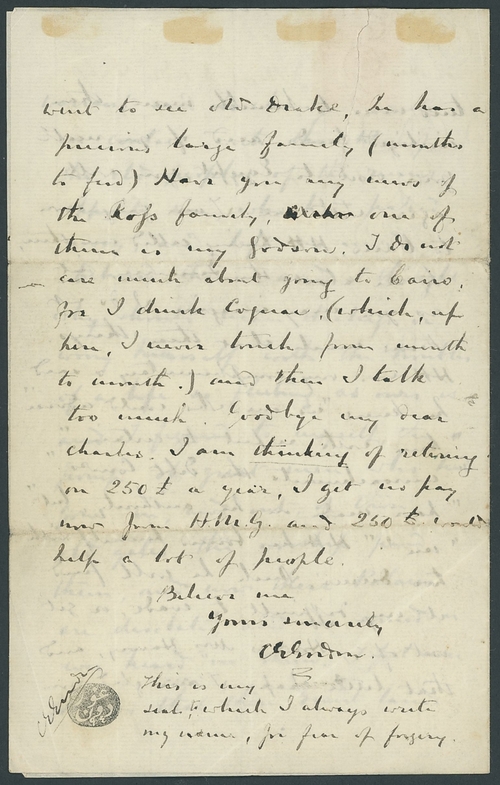 went to see old Drake, he has a
precious large family (mouths
to feed) Have you any news of
the Ross family, one of
them is my Godson. I do not
care much about going to Cairo,
for I drink Cognac, (which, up
here, I never touch from month
to month.) and then I talk
too much. Goodbye my dear
Charles. I am thinking of retiring
on 250 £ a year, I get no pay
now from H.M.G. and 250 £ would
help a lot of people.
Believe me
Yours sincerely
CGGordon.
This is my
seal, which I always write
my name, for fear of forgery.
CGGordon